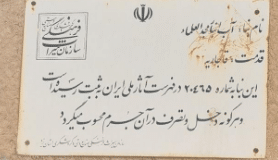 سازمان میراث فرهنگی
نام بنا: آب انبار محمد العلماء
قدمت: قاجاریه
این بنا بشماره ۲۰۴۶۵ در فهرست آثار ملی ایران به ثبت رسیده است
و هرگونه دخل و تصرف در آن جرم محسوب میگردد